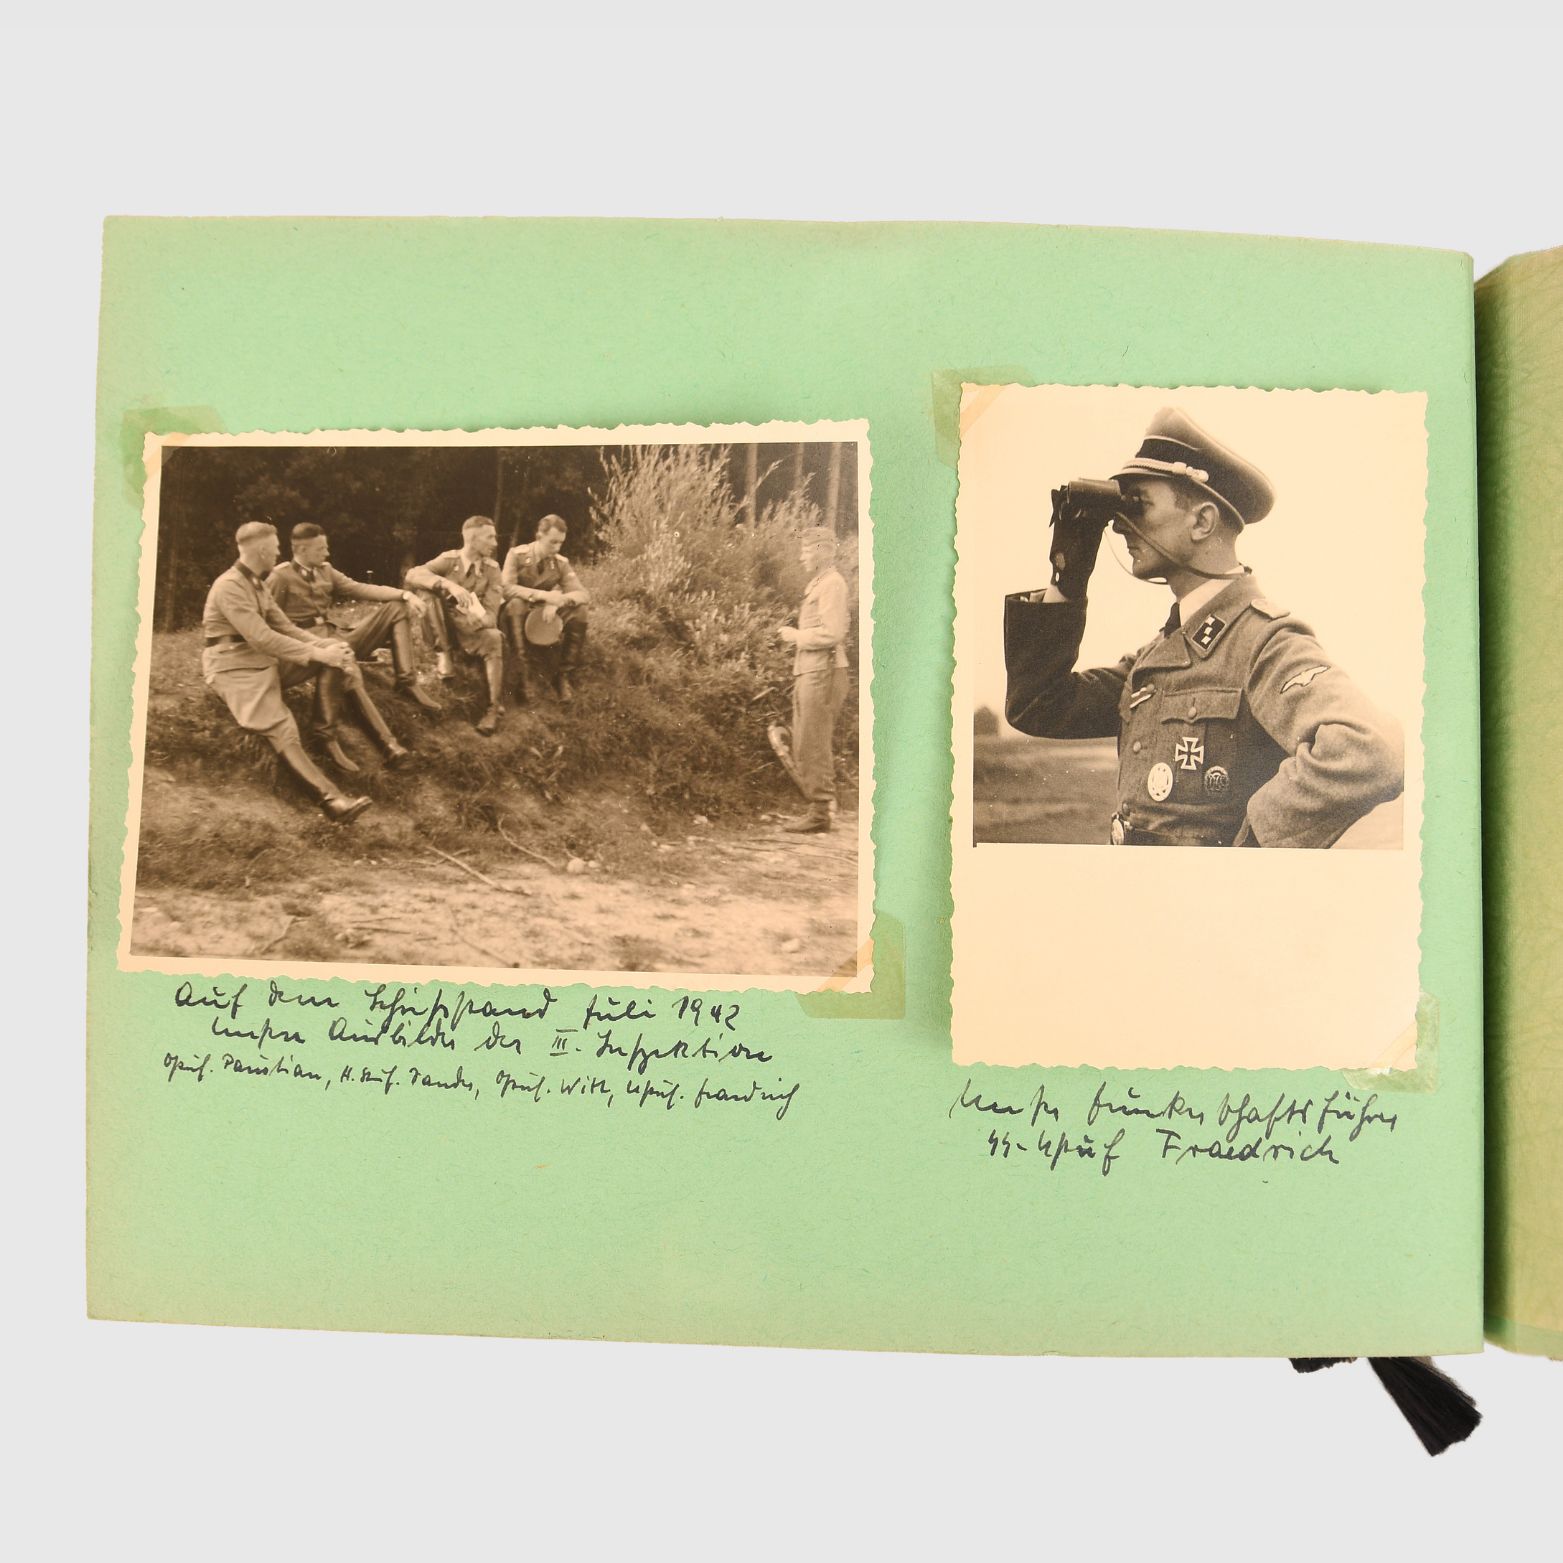 Auf dem Schießstand Juli 1942
Unsere Ausbilder der III. Inspektion
Opuf. Paustian, H. Stuf. Xandr, Opuf. Witt, Upuf. Fraedrich
Unser Junkerschaftsführer
SS-Upuf Fraedrich